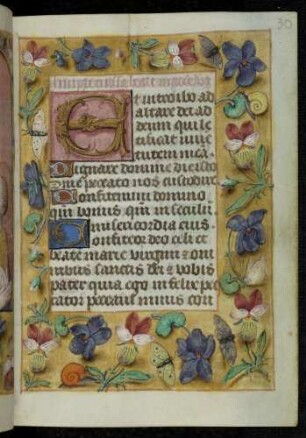 30
Et introibo ad
altare dei ad
deum qui le
tificat iuue
tutem meā.
Dignare domine die isto
sine peccato nos custodire
Confitemini domino
qm bonus qm in seculū
misericordia eius
Confiteor deo celi et
beate marie virgini et oni
bus sanctis et vobis
pater quia ego infelix pec
cator peccaui nimis cont